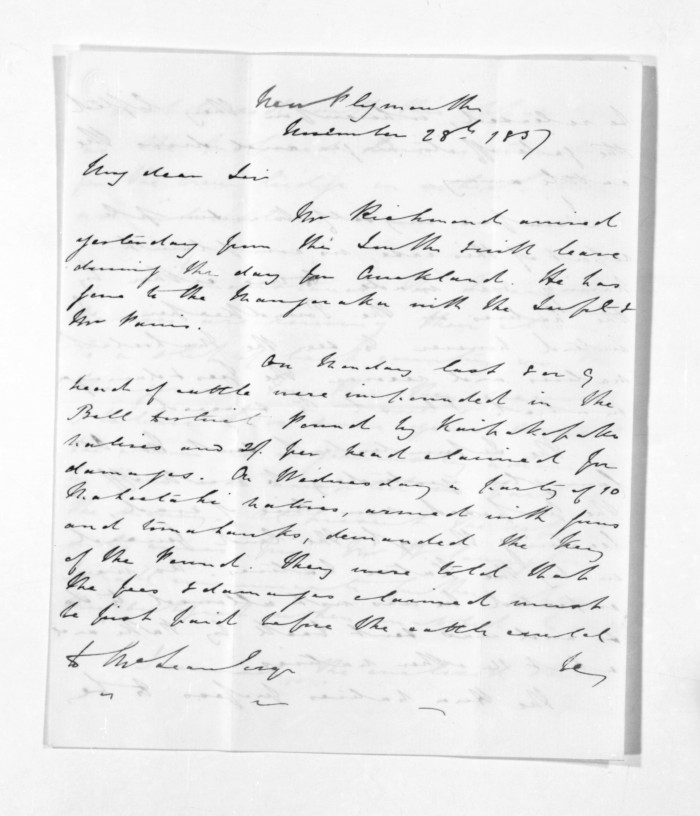 New Plymouth
November 28th 1857
My dear Sir
Mr Richmond arrived
yesterday from the South & will leave
during the day for Auckland. He has
gone to the Mangoraka with the Supt &
Mr Parris.
On Monday last 8 or 9
head of cattle were impounded in the
Bell District Pound by Kaipakopako
natives and 2/ per head claimed for
damages. On Wednesday a party of 10
Mahoetahi natives, armed with guns
and tomahawks, demanded the key
of the Pound. They were told that
the fees & damages claimed must
be first paid before the cattle could
D McLean Esqr
be